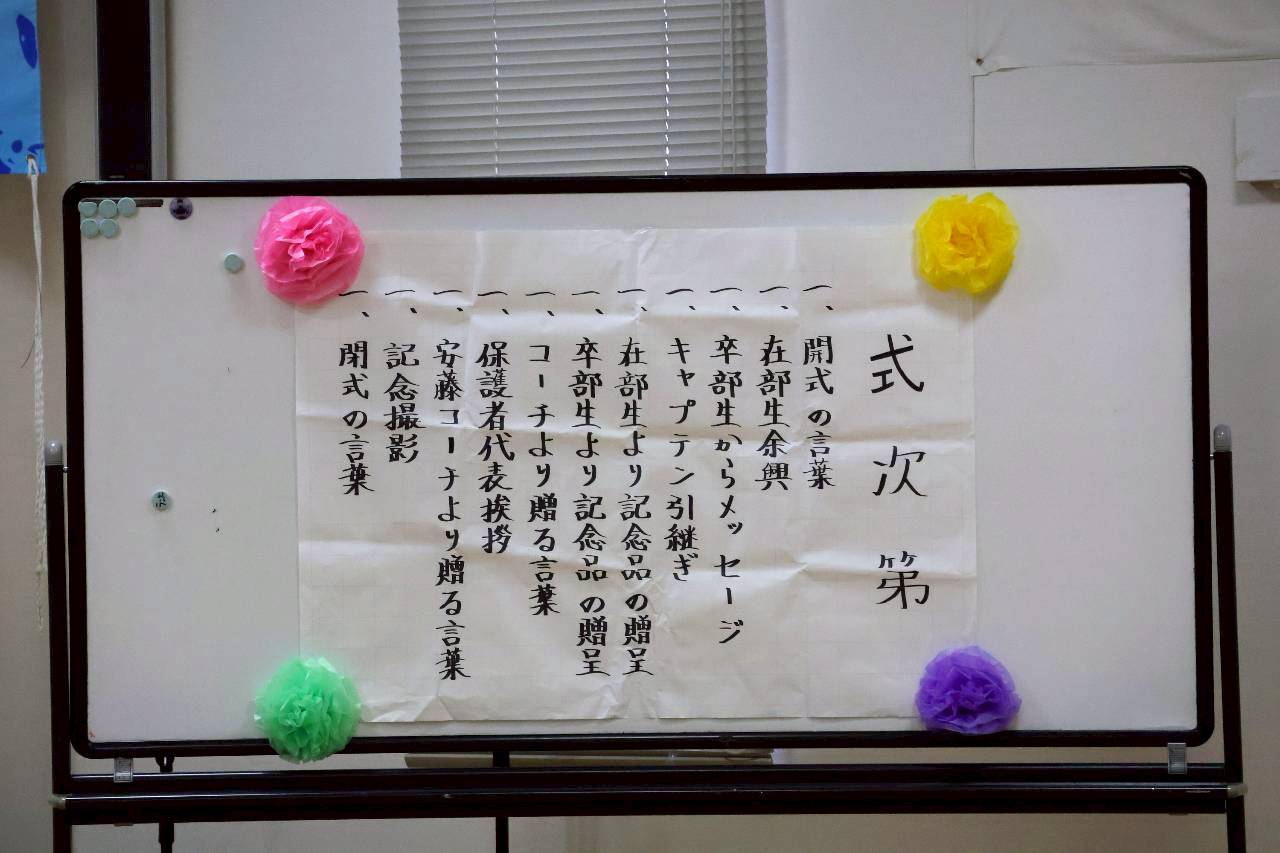 式次第
一、開式の言葉
一、在部生余興
一、卒部生からメッセージ
一、キャプテン引継ぎ
一、在部生より記念品の贈呈
一、卒部生より記念品の贈呈
一、コーチより贈る言葉
一、保護者代表挨拶
一、安藤コーチより贈る言葉
一、記念撮影
一、閉式の言葉